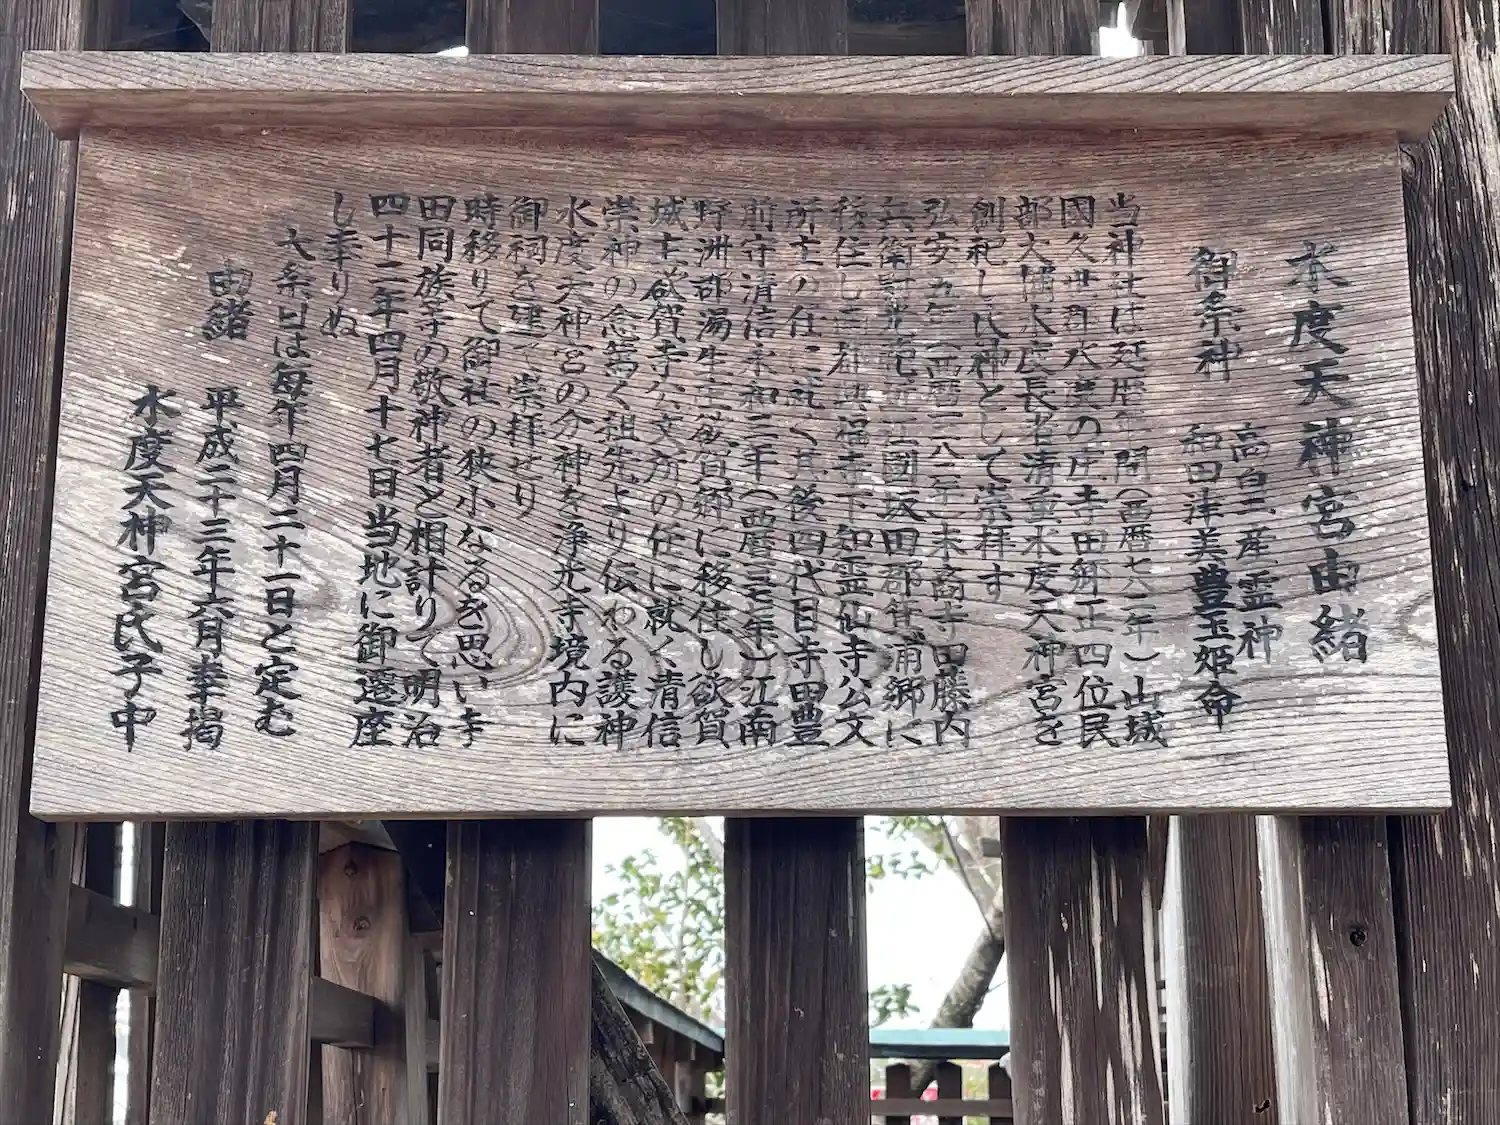 水度天神宮由緒
御祭神 高皇産霊神
和田津美豊玉姫命
当神社は延暦年間(西暦七八二年)山城
國久世郡水度の庄寺田郷正四位民
部大輔水度長者清重水度天神宮を
創祀し氏神として崇拝す
弘安五年(西暦一二八二年)末裔寺田藤内
兵衛 近江國坂田郡箕浦郷に
移住し 下知霊仙寺公文
所主の任に就く其後四代目寺田豊
前守清信永和三年(西暦 年)江南
野洲郡湯生主欲賀郷に移住し欲賀
城主欲賀寺公文所の任に就く清信
崇神の念篤く祖先より伝わる護神
水度天神宮の分神を浄光寺境内に
御祠を建て崇拝せり
時移りて御社の狭小なるを思い寺
田同族等の敬神者と相計りて明治
四十二年四月十七日当地に御遷座
し奉りぬ
大祭日は毎年四月二十一日と定む
由緒 平成二十三年六月奉掲
水度天神宮氏子中